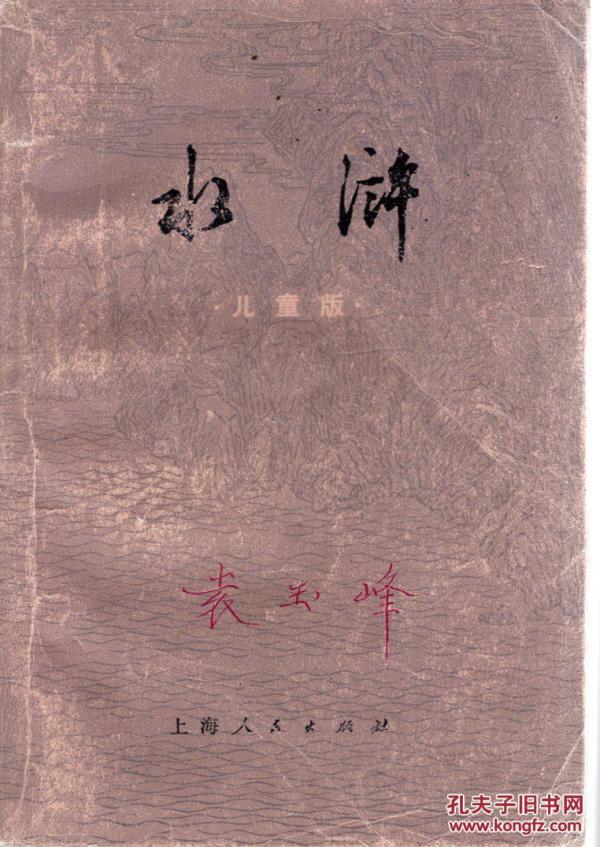 水浒
·儿童版·
袁玉峰
上海人民出版社
孔夫子旧书网
www.kongfz.com